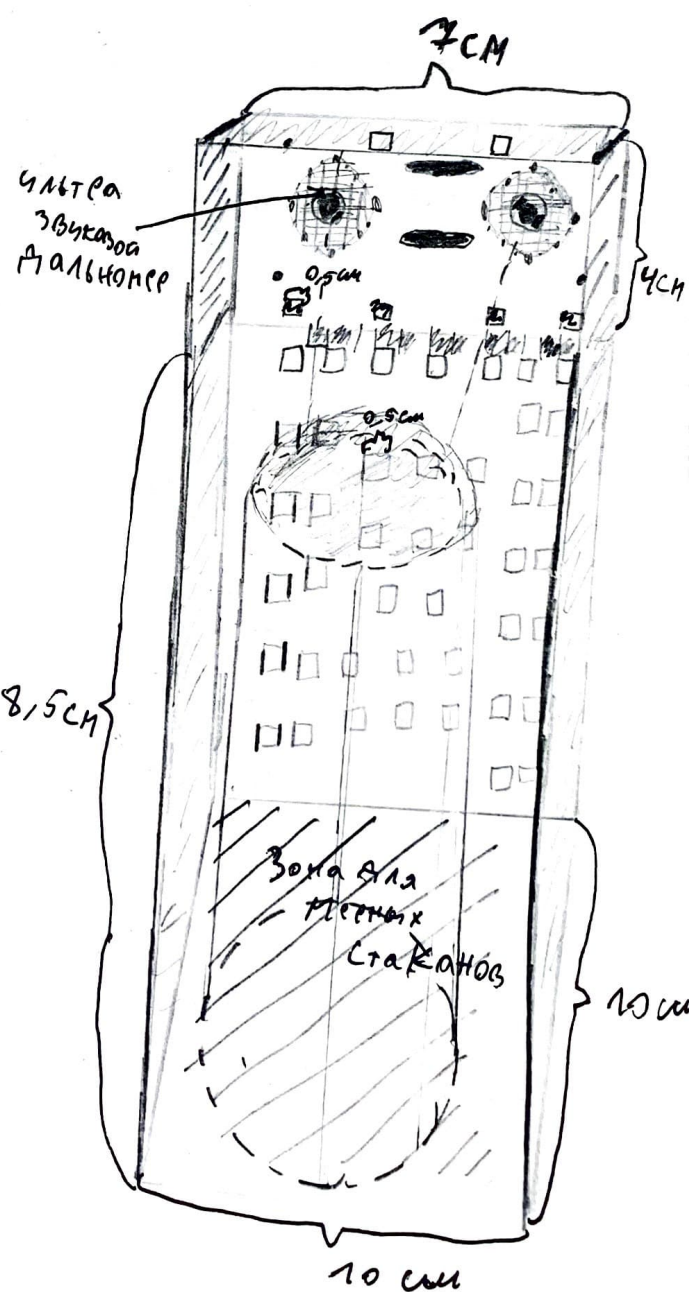 7см
ультра
звуковой
дальномер
4см
0,5см
0,5см
8,5см
Зона для
мерных
стаканов
10 см
10 см